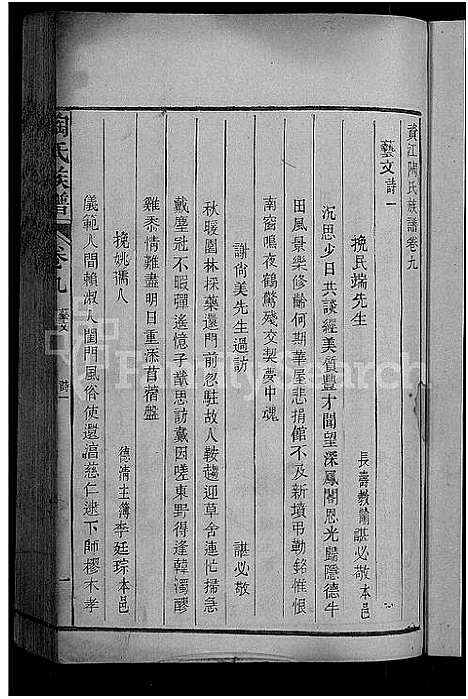 資江陶氏族譜卷九
藝文 詩一
挽民端先生
長壽教諭諶必敬本邑
沉思少日共談經美質豐才聞望深鳳閣恩光歸隱德牛
田風景樂修齡何期華屋悲捐館不及新墳弔勒銘惟恨
南窗鳴夜鶴驚殘交契夢中魂
謝尚美先生過訪
諶必敬
秋暖園林採藥還門前忽駐故人鞍趨迎草舍連忙掃急
戴塵冠不暇彈遙憶子猷思訪戴因嗟東野得逢韓濁醪
雞黍情難盡明日重添苜蓿盤
挽姚孺人
德清主簿李廷琮本邑
儀範人間賴淑人閨門風俗使還湻慈仁逮下師樛木孝
陶氏族譜
卷九
藝文
詩一
一
FamilySearch